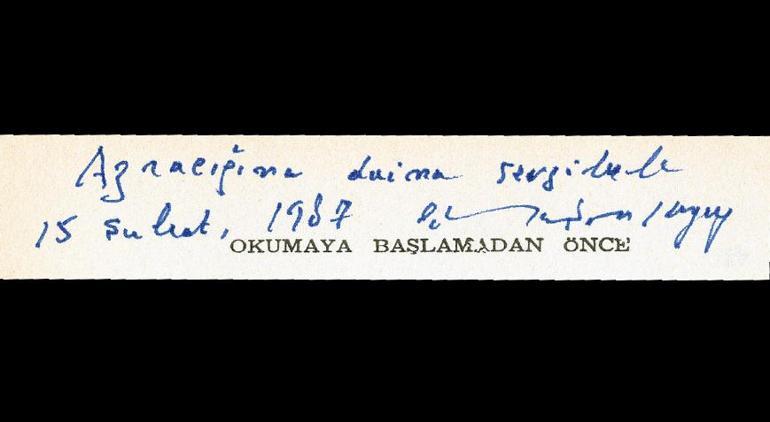 Azracığıma daima sevgilerle
15 Şubat, 1987
OKUMAYA BAŞLAMADAN ÖNCE